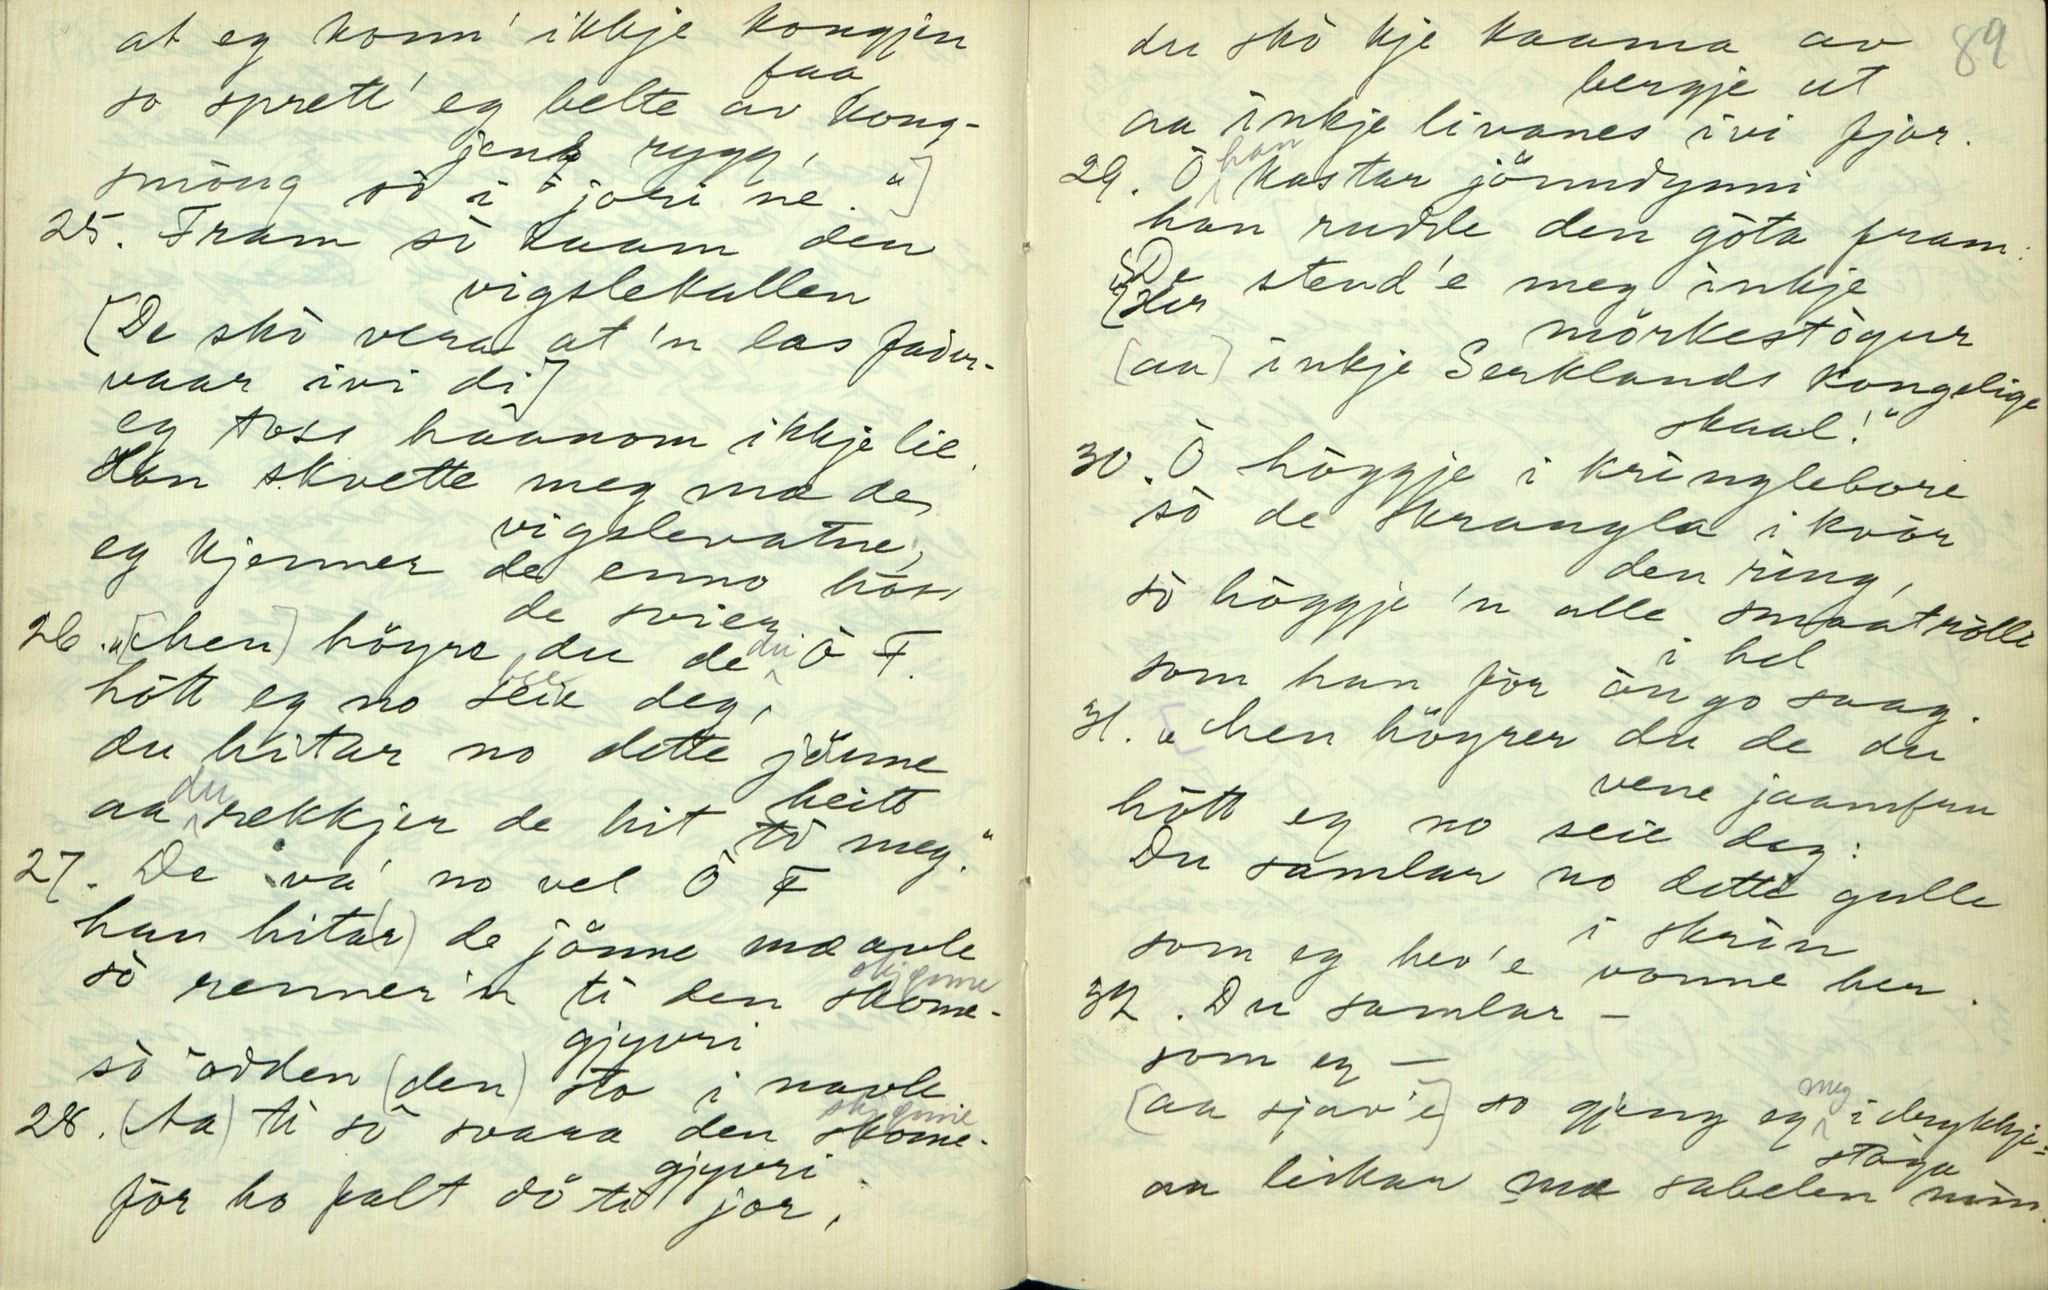 at eg komm' ikkje kongjen
faa
so sprett' eg belte av kong-
jens rygg,
smöng sò i jori ne."]
25. Fram sò kaam den
vigslekallen
[De skò vera at 'n las fader-
vaar ivi di]
eg toss håånom ikkje lie.
Han skvette meg mæ de
vigslevatne,
eg kjenner de enno hòss
de svier
26. "[hen] höyre du de du Ò F.
hòtt eg no seie deg,
du hitar no dette jönne
heitt
aa du rekkjer de hit tò meg."
27. De va' no vel Ò F
han hita(r) de jönne mæ avle
sò renner'n ti den skome-
skjemme
gjyvri
sò odden (den) sto i navle
28. (Aa) ti sò svara den skome-
skjemme
gjyvri
för ho falt dö ti jor,
89
du skò kje kaama av
bergje ut
aa inkje livanes ivi fjor.
29. Ò han kastar jönndynni
han rudde den göta fram:
"De stend'e meg inkje
Her
mörkestògur
[aa] inkje Serklands kongelige
skaal!"
30. Ò höggje i kringlebore
sò de skrangla i kvòr
den ring,
sò höggje 'n alle smaatrölli
i hel
som han för òugo saag.
31. "hen höyrer du de du
vene jaamfru
hòtt eg no seie deg:
Du samlar no dette gulle
i skrin
som eg hev'e vonne her.
32. Du samlar –
som eg –
[aa sjav'e] so gjeng eg meg i drykkje-
stògu
aa leikar mæ sabelen min.